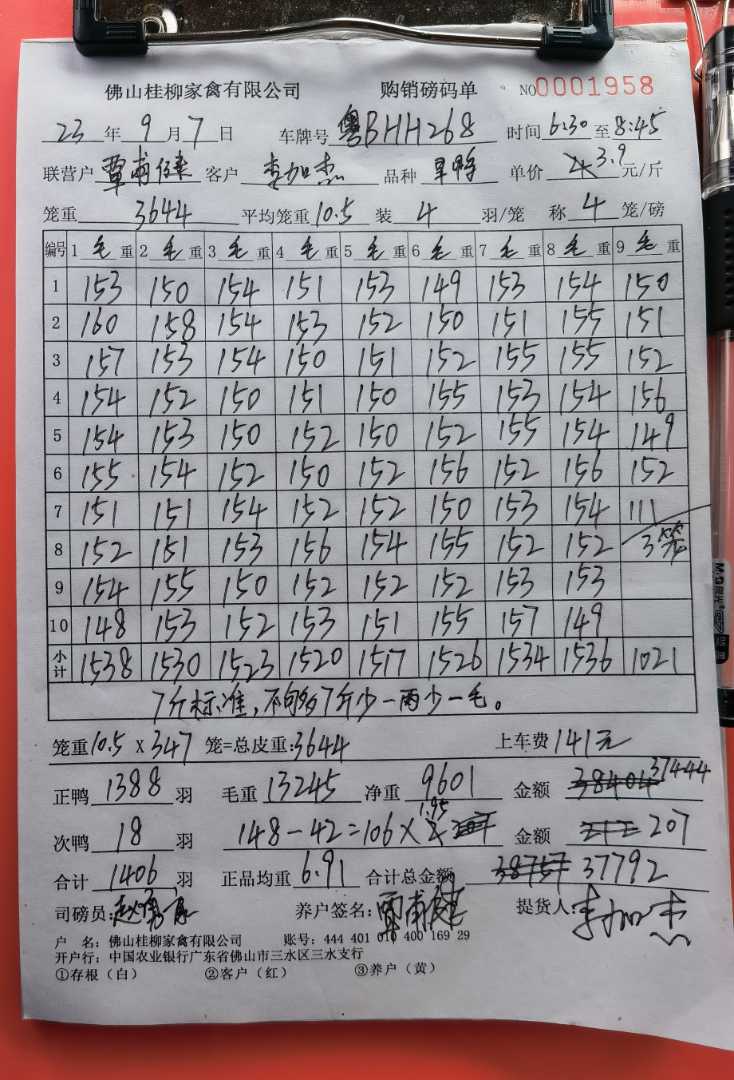 佛山桂柳家禽有限公司 购销磅码单 NO0001958
23年9月7日 车牌号 粤BHH268 时间 6:30 至 8:45
联营户 覃甫健 客户 李加杰 品种 旱鸭 单价 3.9 元/斤
笼重 3644 平均笼重 10.5 装 4 羽/笼 称 4 笼/磅
编号 1 毛 重 2 毛 重 3 毛 重 4 毛 重 5 毛 重 6 毛 重 7 毛 重 8 毛 重 9 毛 重
1 153 150 154 151 153 149 153 154 150
2 160 158 154 153 152 150 151 155 151
3 157 153 154 150 151 152 155 155 152
4 154 152 150 151 150 155 153 154 156
5 154 153 150 152 150 152 155 154 149
6 155 154 152 150 152 156 152 156 152
7 151 151 154 152 152 150 153 154 111
8 152 151 153 156 154 155 152 152 3笼
9 154 155 150 152 152 152 153 153
10 148 153 152 153 151 155 157 149
小计 1538 1530 1523 1520 1517 1526 1534 1536 1021
7斤标准,不够7斤少一两少一毛。
笼重10.5 X 347 笼=总皮重:3644 上车费 141元
正鸭 1388 羽 毛重 13245 净重 9601 金额 38404 37444
次鸭 18 羽 148-42=106× 1.95 金额 207
合计 1406 羽 正品均重 6.91 合计总金额 38757 37792
司磅员: 养户签名:覃甫健 提货人:李加杰
户 名:佛山桂柳家禽有限公司 账号:444 401 010 400 169 29
开户行:中国农业银行广东省佛山市三水区三水支行
①存根(白) ②客户(红) ③养户(黄)